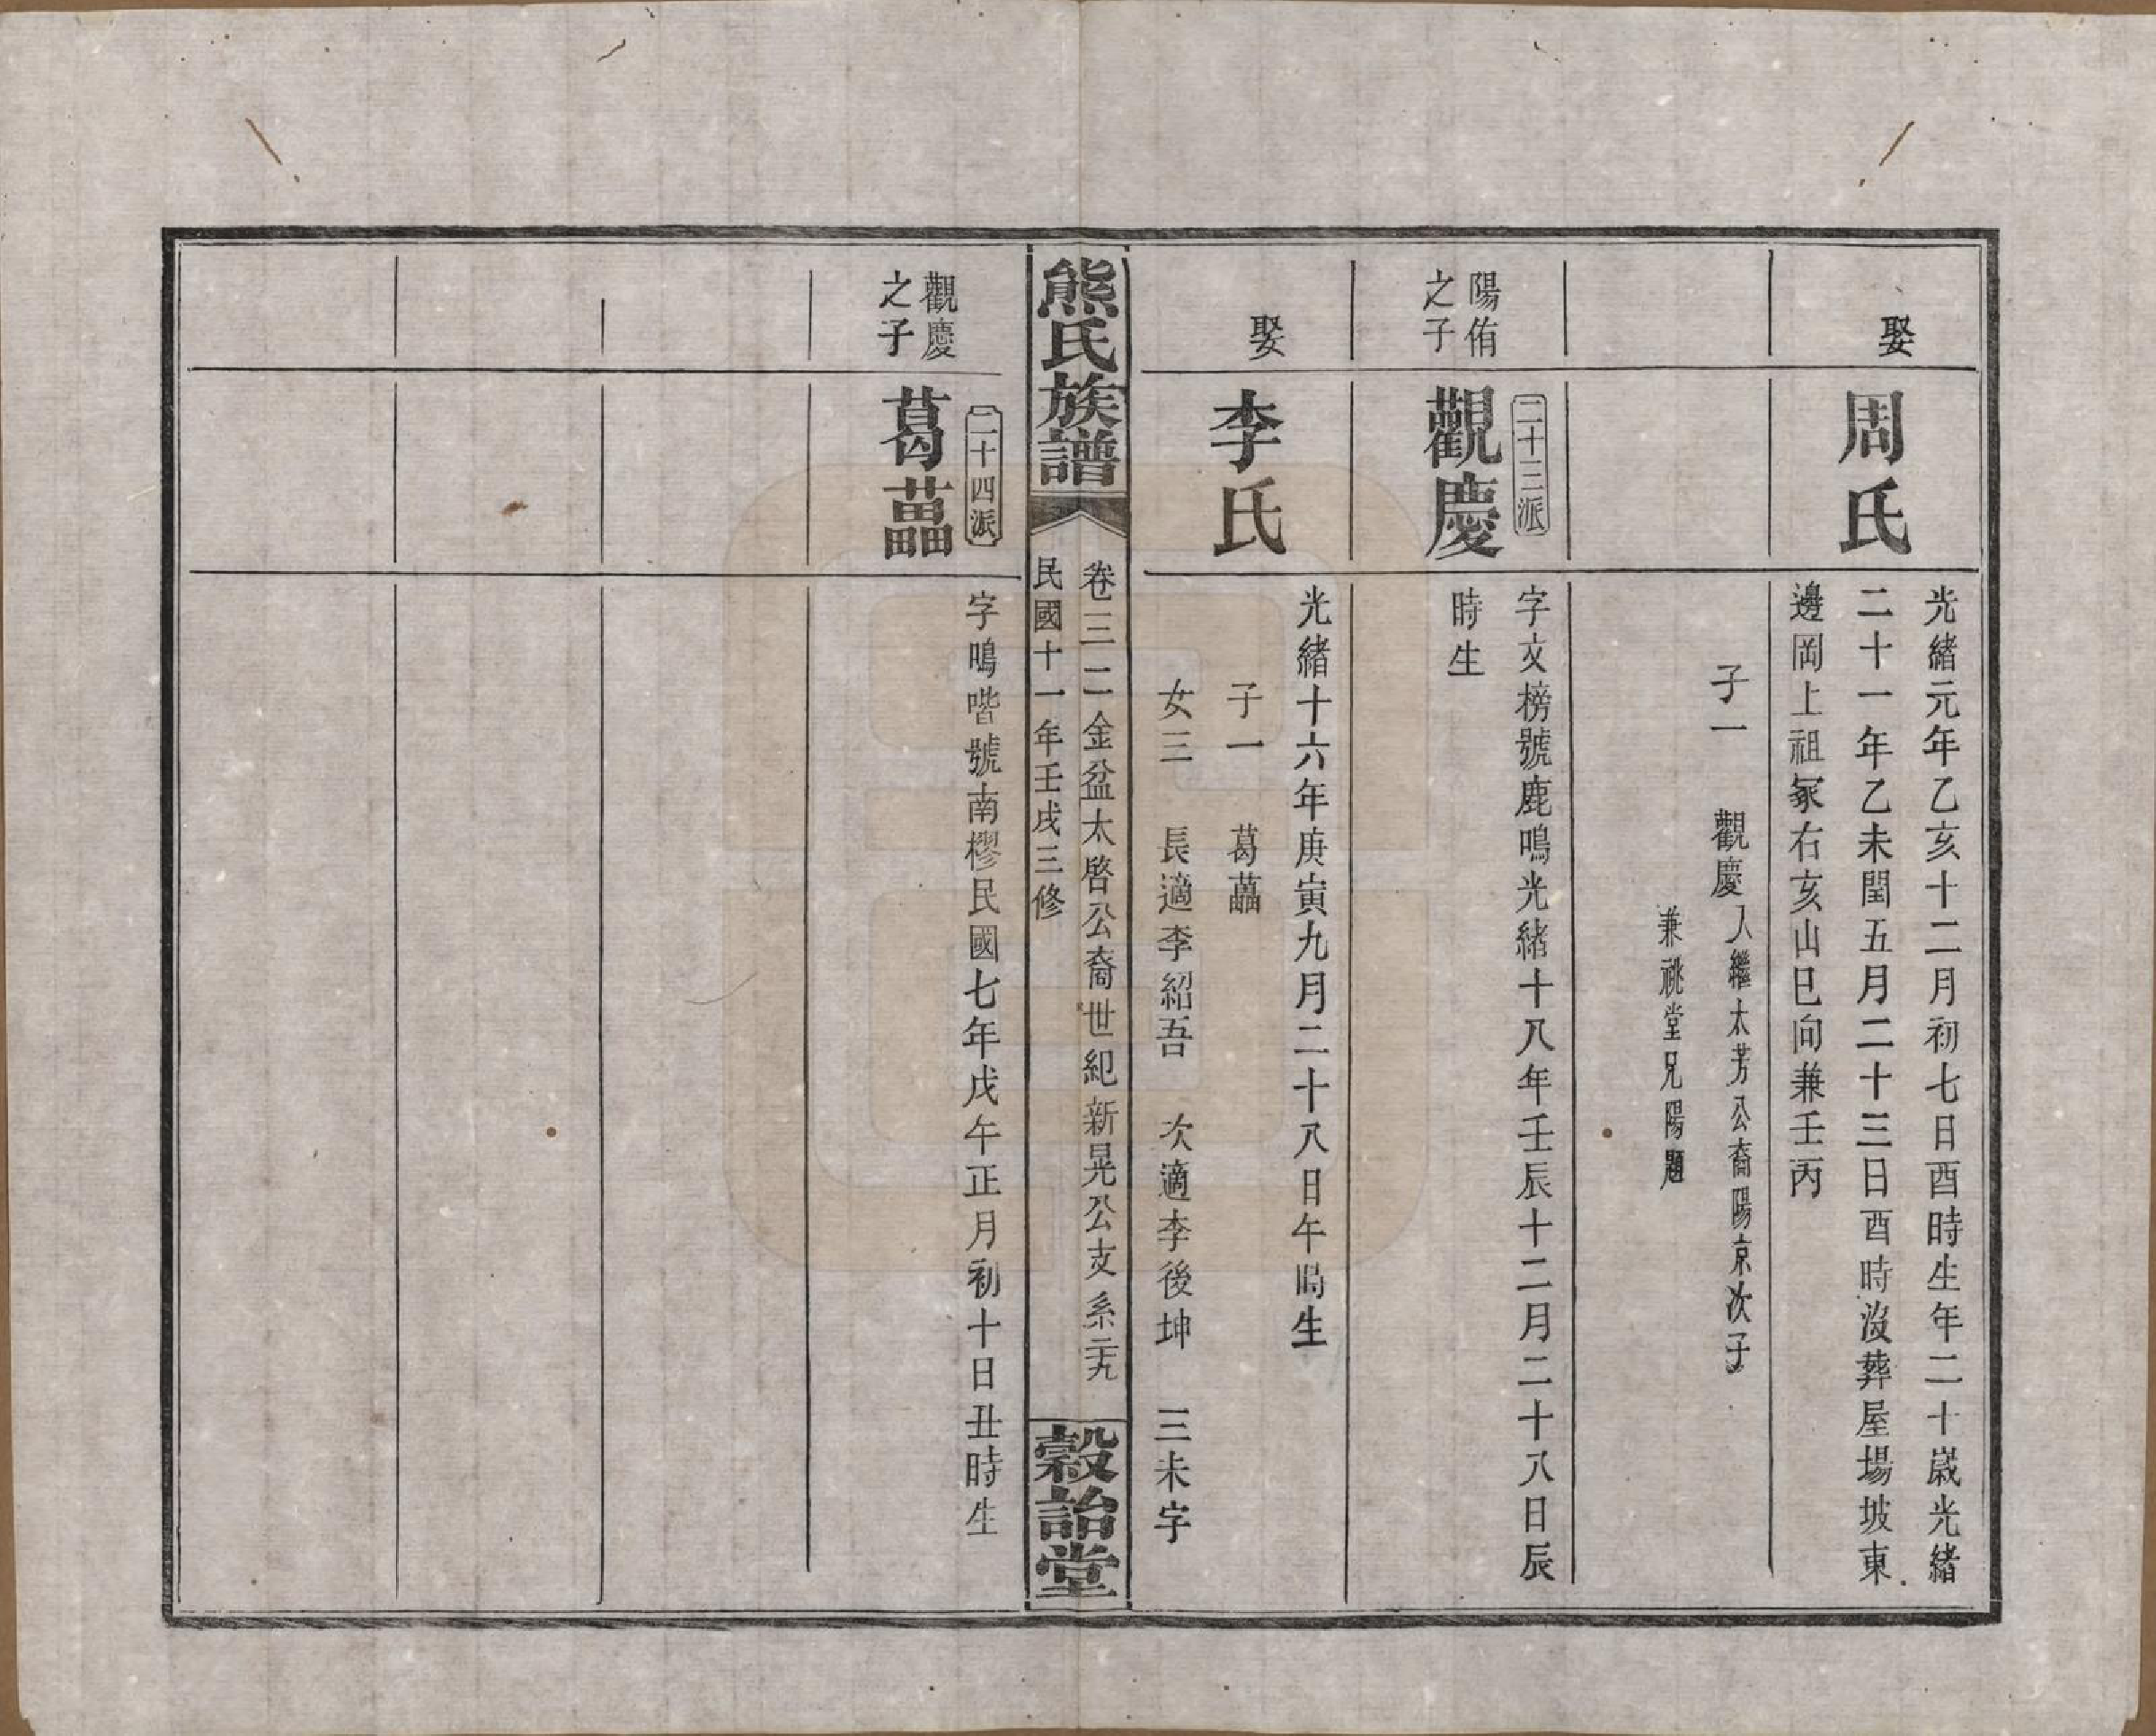 娶
周氏
光緒元年乙亥十二月初七日酉時生年二十歲光緒
二十一年乙未閏五月二十三日酉時沒葬屋場坡東
邊岡上祖冢右亥山巳向兼壬丙
子一　觀慶入繼太芳公裔陽京次子
兼祧堂兄陽題
陽侑
之子
二十三派
觀慶
字文榜號鹿鳴光緒十八年壬辰十二月二十八日辰
時生
娶
李氏
光緒十六年庚寅九月二十八日午時生
子一　葛藟
女三　長適李紹吾　次適李後坤　三未字
熊氏族譜
卷三二金盆太啓公裔世紀新晃公支系二九
民國十一年壬戌三修
穀詒堂
觀慶
之子
二十四派
葛藟
字鳴喈號南樛民國七年戊午正月初十日丑時生